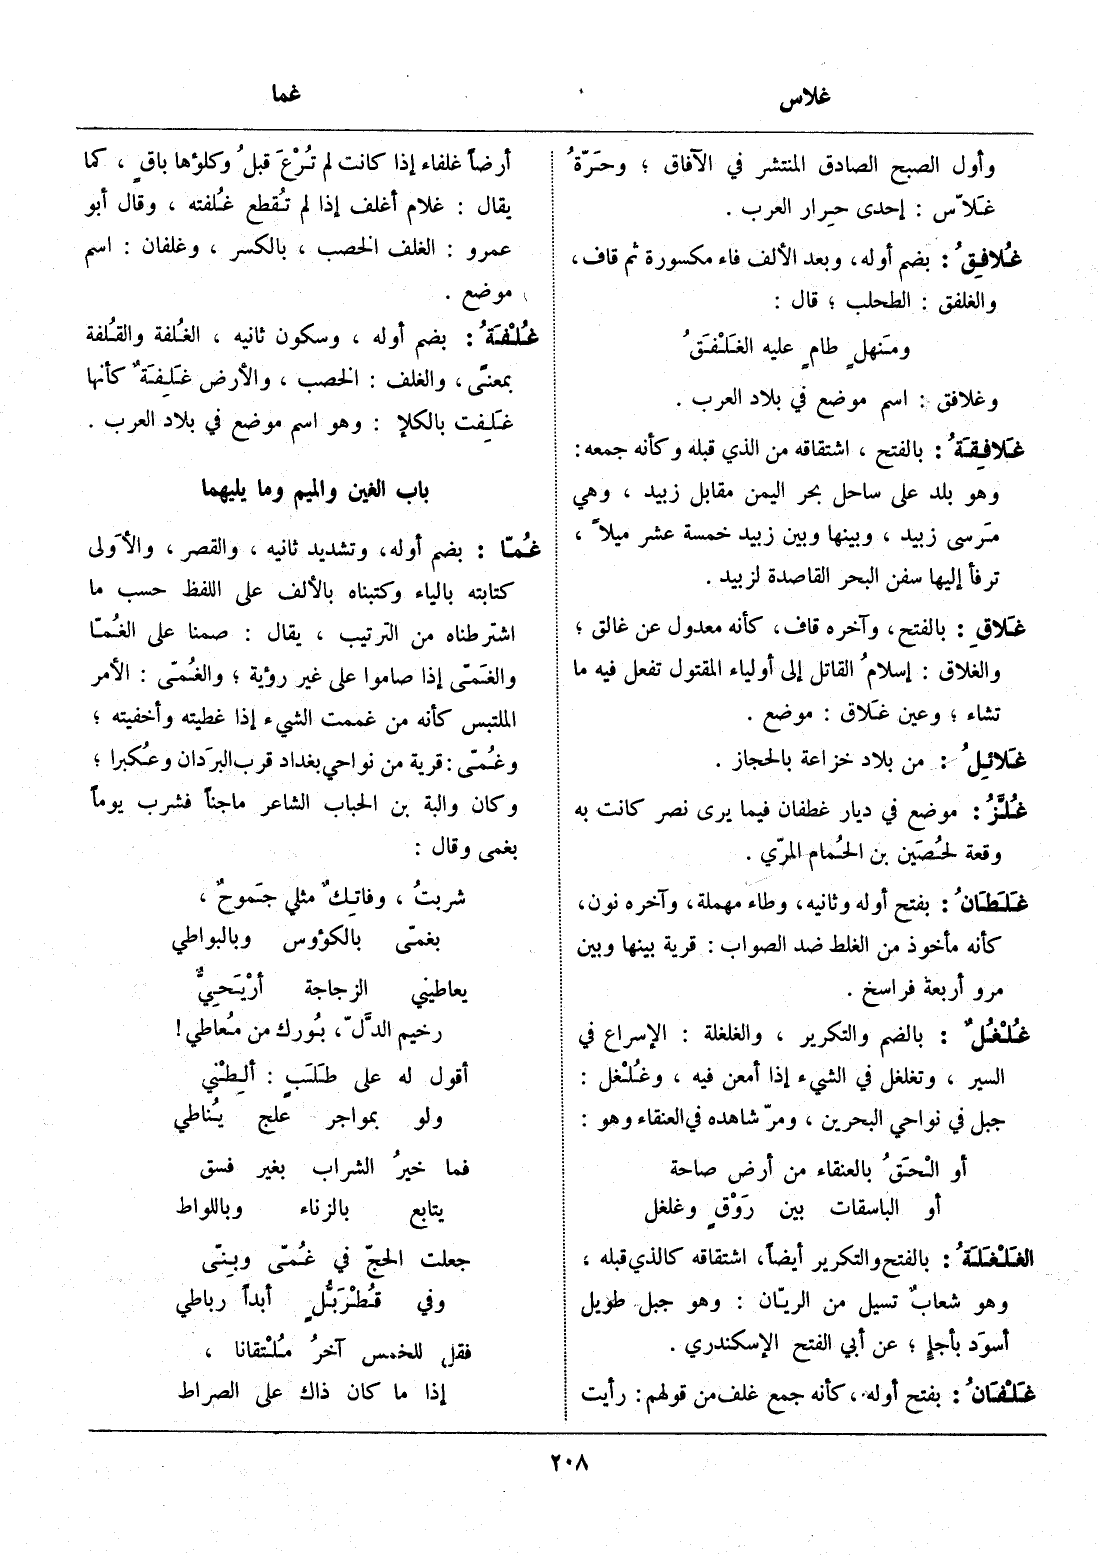 غلاس
غما
وأول الصبح الصادق المنتشر في الآفاق ؛ وحَرّةُ
غَلاّس : إحدى حِرار العرب .
غُلافِقُ : بضم أوله، وبعد الألف فاء مكسورة ثم قاف،
والغلفق : الطحلب ؛ قال :
ومَنهلٍ طامٍ عليه الغَلْفَقُ
وغلافق : اسم موضع في بلاد العرب .
غَلافِقَةُ : بالفتح ، اشتقاقه من الذي قبله وكأنه جمعه:
وهو بلد على ساحل بحر اليمن مقابل زبيد ، وهي
مَرسى زبيد ، وبينها وبين زبيد خمسة عشر ميلاً ،
ترفأ إليها سفن البحر القاصدة لزبيد .
غَلاقِ : بالفتح، وآخره قاف، كأنه معدول عن غالق ؛
والغلاق : إسلامُ القاتل إلى أولياء المقتول تفعل فيه ما
تشاء ؛ وعين غَلاق : موضع .
غَلائِلُ : من بلاد خزاعة بالحجاز .
غُلَّزُ : موضع في ديار غطفان فيما يرى نصر كانت به
وقعة لحُصَين بن الحُمام المرّي .
غَلَطَانُ : بفتح أوله وثانيه، وطاء مهملة، وآخره نون،
كأنه مأخوذ من الغلط ضد الصواب : قرية بينها وبين
مرو أربعة فراسخ .
غُلْغُلٌ : بالضم والتكرير ، والغلغلة : الإسراع في
السير ، وتغلغل في الشيء إذا أمعن فيه ، وغُلْغل :
جبل في نواحي البحرين ، ومرّ شاهده في العنقاء وهو :
أو الْحَقُ بالعنقاء من أرض صاحة
أو الباسقات بين رَوْقٍ وغلغل
الغَلْغَلَةُ : بالفتح والتكرير أيضاً، اشتقاقه كالذي قبله ،
وهو شعابٌ تسيل من الريّان : وهو جبل طويل
أسوَد بأجإٍ ؛ عن أبي الفتح الإسكندري .
غَلْفَانُ : بفتح أوله، كأنه جمع غلف من قولهم: رأيت
أرضاً غلفاء إذا كانت لم تُرْعَ قبلُ وكلؤها باقٍ ، كما
يقال : غلام أغلف إذا لم تُقطع غُلفته ، وقال أبو
عمرو : الغلف الخصب ، بالكسر ، وغلفان : اسم
موضع .
غُلْفَةُ : بضم أوله ، وسكون ثانيه ، الغُلفة والقُلفة
بمعنًى ، والغلف : الخصب ، والأرض غَلِفَةٌ كأنها
غَلِفت بالكلإ : وهو اسم موضع في بلاد العرب .
باب الغين والميم وما يليهما
غُمّا : بضم أوله، وتشديد ثانيه ، والقصر ، والأولى
كتابته بالياء وكتبناه بالألف على اللفظ حسب ما
اشترطناه من الترتيب ، يقال : صمنا على الغُمّا
والغَمّى إذا صاموا على غير رؤية ؛ والغُمّى : الأمر
الملتبس كأنه من غممت الشيء إذا غطيته وأخفيته ؛
وغُمّى : قرية من نواحي بغداد قرب البرَدان وعُكبرا ؛
وكان والبة بن الحباب الشاعر ماجناً فشرب يوماً
بغمى وقال :
شربتُ ، وفاتِكٌ مثلي جَموحٌ ،
بغمّى بالكؤوس وبالبواطي
يعاطيني الزجاجة أرْيَحيٌّ
رخيم الدَّلّ، بُورك من مُعاطي !
أقول له على طَلَبٍ : ألِطْني
ولو بمواجر علج يُناطي
فما خيرُ الشراب بغير فسق
يتابع بالزناء وباللواط
جعلت الحجّ في غُمّى وبِنّى
وفي قُطْرَبُّلٍ أبداً رباطي
فقل للخمس آخرُ مُلْتقانا ،
إذا ما كان ذاك على الصراط
٢٠٨